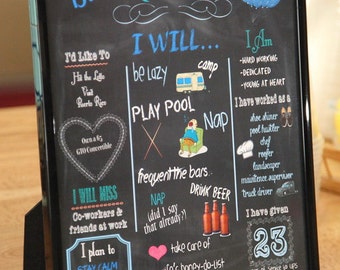 I'd Like To
Hit the Lotto
Visit
Puerto Rico
Own a 65
GTO Convertible
I WILL MISS
Co-workers &
friends at work
I plan to
STAY CALM
I WILL...
be lazy
camp
PLAY POOL
Nap
frequent the bars
NAP
(did I say
that already?)
DRINK BEER
take care of
honey-do-list
I Am
- HARD WORKING
- DEDICATED
- YOUNG AT HEART
I have worked as a
shoe shiner
pool hustler
chef
roofer
landscaper
maintenance superviser
truck driver
I have given
23